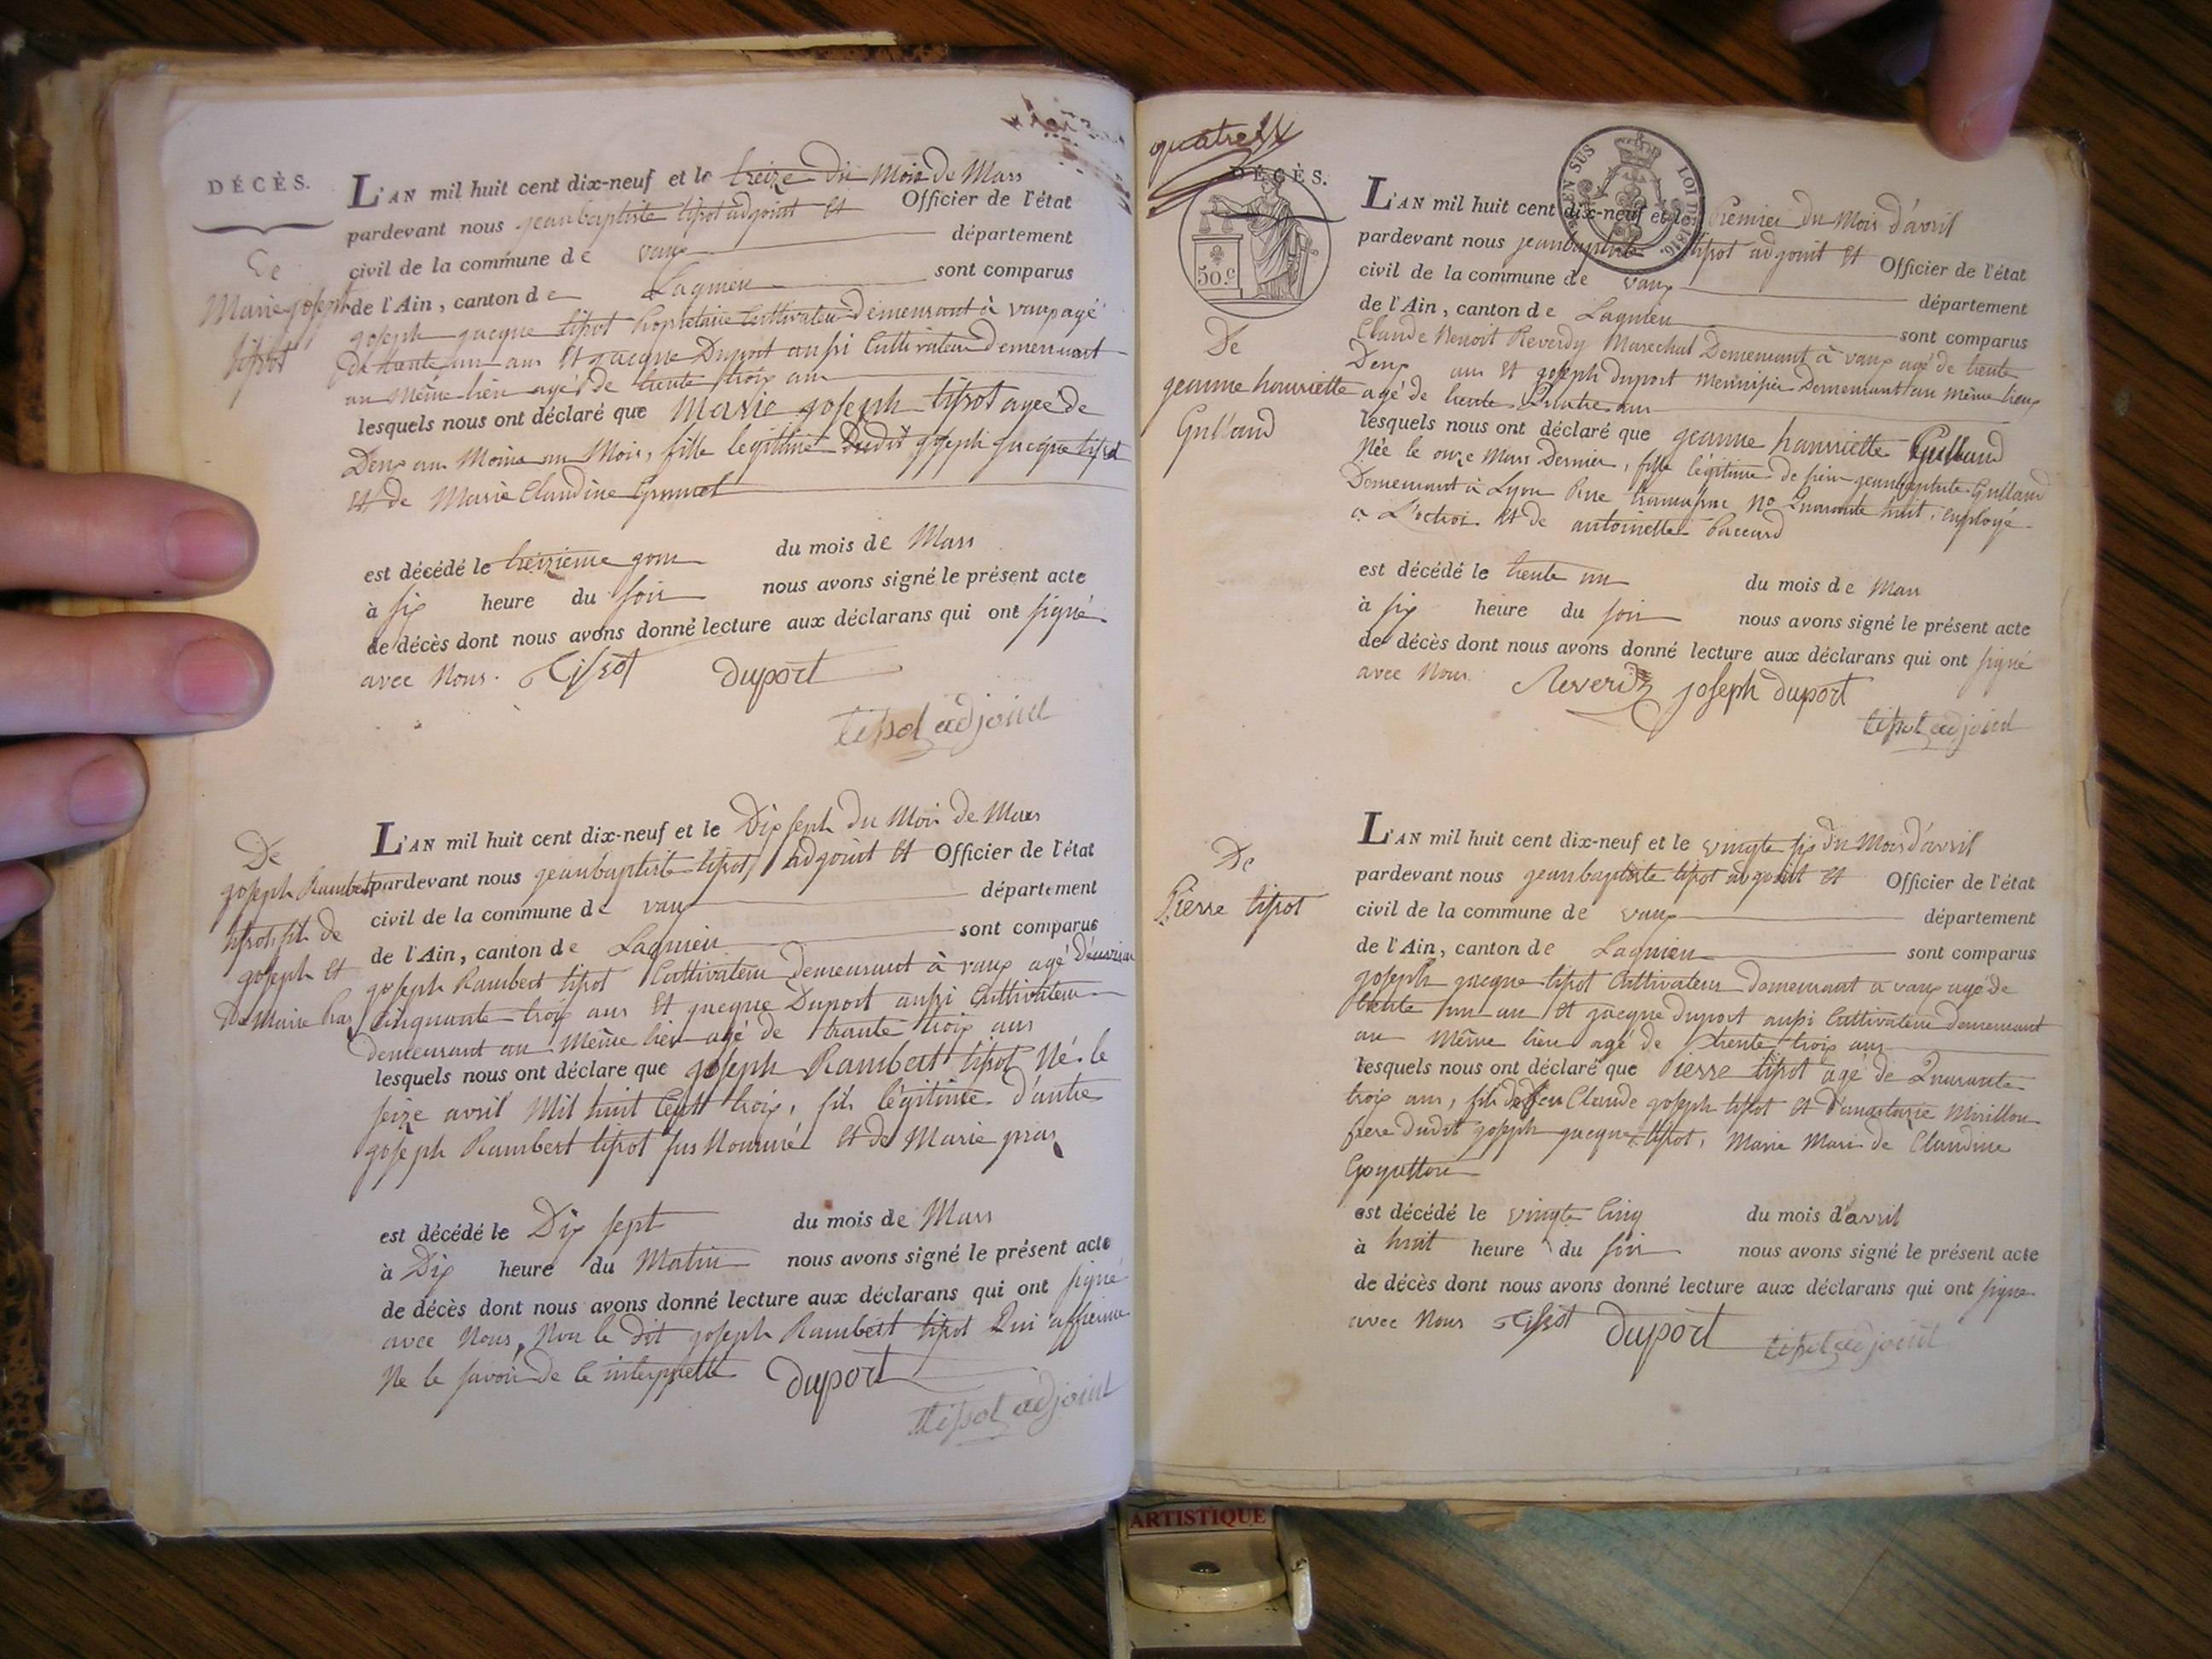 DÉCÈS.
De
Marie joseph
tissot
L'AN mil huit cent dix-neuf et le treize du Mois de Mars
pardevant nous jeanbaptiste tissot adjoint et Officier de l'état
civil de la commune de vaux département
de l'Ain, canton de Lagnieu sont comparus
joseph jacque tissot Propriétaire Cultivateur demeurant à vaux agé
de trente un ans Et jacque Duport aussi Cultivateur demeurant
au même lieu agé de trente trois ans
lesquels nous ont déclaré que Marie joseph tissot agée de
Deux ans Moins un Mois, fille legitime dudit joseph jacque tissot
et de Marie Claudine
est décédé le treizieme jour du mois de Mars
à six heure du soir nous avons signé le présent acte
de décès dont nous avons donné lecture aux déclarans qui ont signé
avec Nous. Tissot duport
tissot adjoint
De
joseph Rambert
tissot fils de
joseph et
de Marie
L'AN mil huit cent dix-neuf et le Dix sept du Mois de Mars
pardevant nous jeanbaptiste tissot adjoint et Officier de l'état
civil de la commune de vaux département
de l'Ain, canton de Lagnieu sont comparus
joseph Rambert tissot Cultivateur demeurant à vaux agé d'environ
Cinquante trois ans Et jacque Duport aussi Cultivateur
demeurant au même lieu agé de trante trois ans
lesquels nous ont déclare que joseph Rambert tissot Né le
seize avril Mil huit Cent trois, fils légitime d'autre
joseph Rambert tissot sus Nommé et de Marie
est décédé le Dix sept du mois de Mars
à Dix heure du Matin nous avons signé le présent acte
de décès dont nous avons donné lecture aux déclarans qui ont signé
avec Nous, Non le dit joseph Rambert tissot Qui affirme
Ne le savoir de ce interpellé duport
tissot adjoint
quatre
DÉCÈS.
50.c
EN SUS LOI DE 1816.
De
jeanne hanriette
Gulland
L'AN mil huit cent dix-neuf et le Premier du Mois d'avril
pardevant nous jeanbaptiste tissot adjoint et Officier de l'état
civil de la commune de vaux département
de l'Ain, canton de Lagnieu sont comparus
Claude Benoit Reverdy Marechal Demeurant à vaux agé de trente
Deux ans et joseph duport Mennisier Demeurant au même lieux
agé de trente Quatre ans
lesquels nous ont déclaré que jeanne hanriette Gulland
Née le onze Mars Dernier, fille légitime de sieur jeanbaptiste Gulland
Demeurant à Lyon Rue No Quarante huit, employé
a L'octroi et de antoinette Paccard
est décédé le trente un du mois de Mars
à six heure du soir nous avons signé le présent acte
de décès dont nous avons donné lecture aux déclarans qui ont signé
avec Nous Reverdy joseph duport
tissot adjoint
De
Pierre tissot
L'AN mil huit cent dix-neuf et le vingte six du Mois d'avril
pardevant nous jeanbaptiste tissot adjoint et Officier de l'état
civil de la commune de vaux département
de l'Ain, canton de Lagnieu sont comparus
joseph jacque tissot Cultivateur demeurant a vaux agé de
trente un an et jacque duport aussi Cultivateur demeurant
au même lieu agé de trente trois ans
lesquels nous ont déclaré que Pierre tissot agé de Quarante
trois ans, fils de feu Claude joseph tissot et d'anastasie
frere dudit joseph jacque tissot, Mari de Claudine
est décédé le vingte Cinq du mois d'avril
à huit heure du soir nous avons signé le présent acte
de décès dont nous avons donné lecture aux déclarans qui ont signe
avec Nous Tissot duport tissot adjoint
ARTISTIQUE